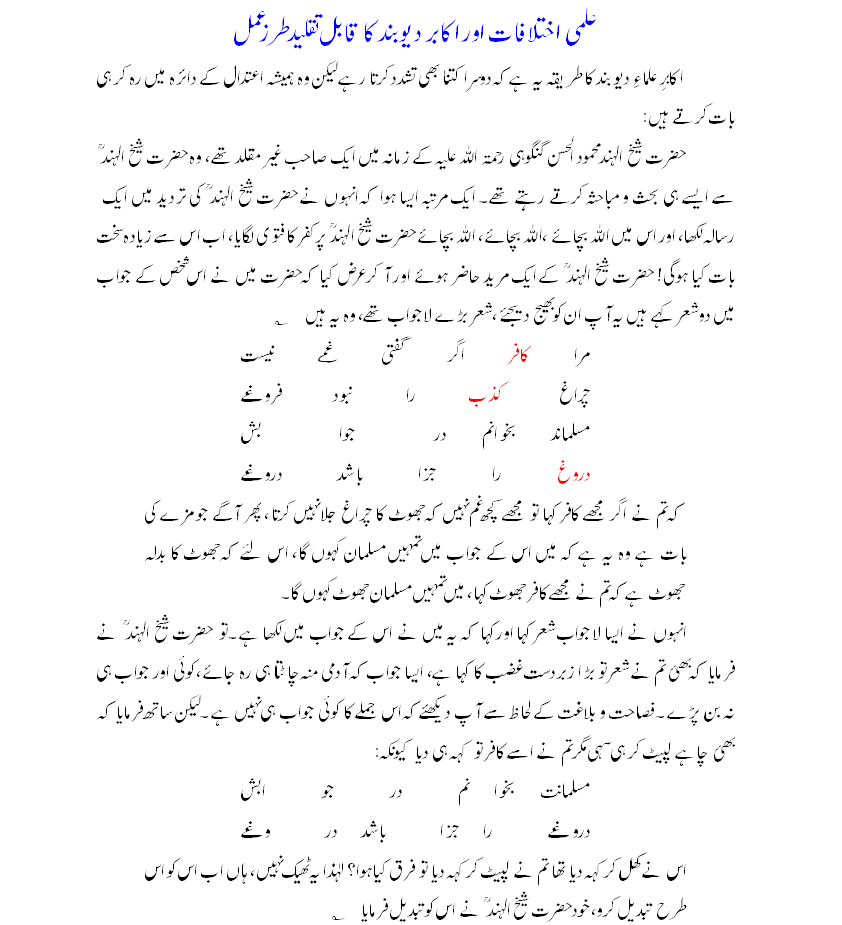 علمی اختلافات اور اکابر دیوبند کا قابل تقلید طرز عمل
اکابرِ علماءِ دیوبند کا طریقہ یہ ہے کہ دوسرا کتنا بھی تشدد کرتا رہے لیکن وہ ہمیشہ اعتدال کے دائرہ میں رہ کر ہی
بات کرتے ہیں:
حضرت شیخ الہند محمود الحسن گنگوہی رحمۃ اللہ علیہ کے زمانہ میں ایک صاحب غیر مقلد تھے، وہ حضرت شیخ الہندؒ
سے ایسے ہی بحث و مباحثہ کرتے رہتے تھے۔ ایک مرتبہ ایسا ہوا کہ انہوں نے حضرت شیخ الہندؒ کی تردید میں ایک
رسالہ لکھا، اور اس میں اللہ بچائے ،اللہ بچائے، اللہ بچائے حضرت شیخ الہندؒ پر کفر کا فتویٰ لگایا، اب اس سے زیادہ سخت
بات کیا ہوگی! حضرت شیخ الہندؒ کے ایک مرید حاضر ہوئے اور آ کر عرض کیا کہ حضرت میں نے اس شخص کے جواب
میں دو شعر کہے ہیں یہ آپ ان کو بھیج دیجئے ،شعر بڑے لاجواب تھے، وہ یہ ہیں ؎
مرا کافر اگر گفتی غمے نیست
چراغ کذب را نبود فروغے
مسلماند بخوانم در جوا بش
دروغ را جزا باشد دروغے
کہ تم نے اگر مجھے کافر کہا تو مجھے کچھ غم نہیں کہ جھوٹ کا چراغ جلا نہیں کرتا، پھر آگے جو مزے کی
بات ہے وہ یہ ہے کہ میں اس کے جواب میں تمہیں مسلمان کہوں گا، اس لئے کہ جھوٹ کا بدلہ
جھوٹ ہے کہ تم نے مجھے کافر جھوٹ کہا، میں تمہیں مسلمان جھوٹ کہوں گا۔
انہوں نے ایسا لاجواب شعر کہا اور کہا کہ یہ میں نے اس کے جواب میں لکھا ہے۔تو حضرت شیخ الہندؒ نے
فرمایا کہ بھئی تم نے شعر تو بڑا زبردست غضب کا کہا ہے، ایسا جواب کہ آدمی منہ چاٹتا ہی رہ جائے ،کوئی اور جواب ہی
نہ بن پڑے۔فصاحت و بلاغت کے لحاظ سے آپ دیکھئے کہ اس جملے کا کوئی جواب ہی نہیں ہے۔لیکن ساتھ فرمایا کہ
بھئی چاہے لپیٹ کر ہی سہی مگر تم نے اسے کافر تو کہہ ہی دیا کیونکہ:
مسلمانت بخوا نم در جو ابش
دروغے را جزا باشد در وغے
اس نے کھل کر کہہ دیا تھا تم نے لپیٹ کر کہہ دیا تو فرق کیا ہوا؟ لہٰذا یہ ٹھیک نہیں، ہاں اب اس کو اس
طرح تبدیل کرو، خود حضرت شیخ الہندؒ نے اس کو تبدیل فرمایا ؎